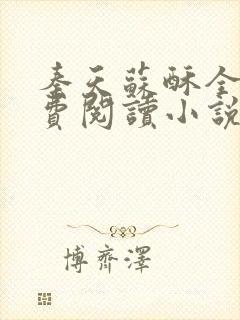 奉天蘇酥全
費閱讀小說
博齊澤